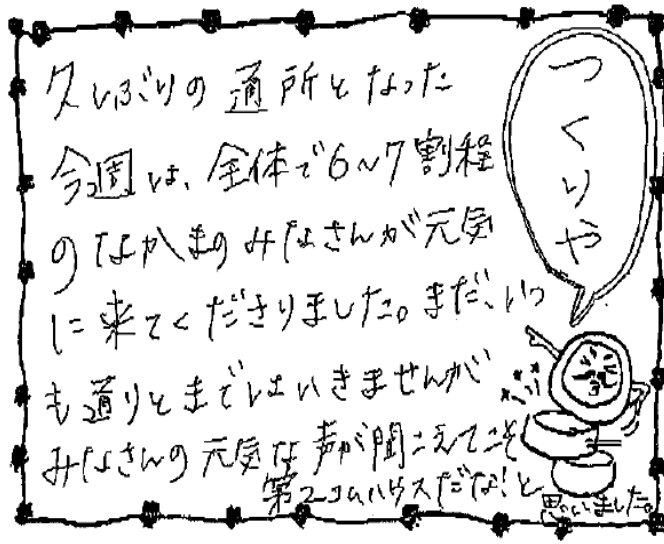 つくりや
久しぶりの通所となった
今週は、全体で6～7割程
のなかまのみなさんが元気
に来てくださりました。まだ、いつ
も通りとまではいきませんが
みなさんの元気な声が聞こえてこそ
第2コムハウスだな！と
思いました。